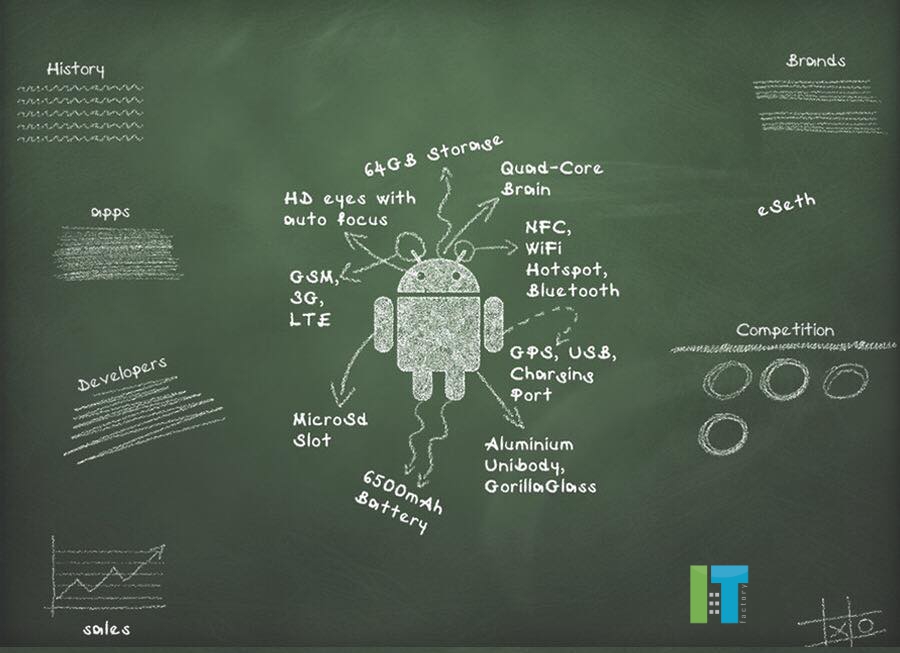 History
Brands
64GB Storage
Quad-Core
Brain
HD eyes with
auto focus
apps
eSeth
NFC,
WiFi
Hotspot,
Bluetooth
GSM,
3G,
LTE
Competition
GPS, USB,
Charging
Port
Developers
MicroSd
Slot
Aluminium
Unibody,
GorillaGlass
6500mAh
Battery
IT
factory
X O
sales